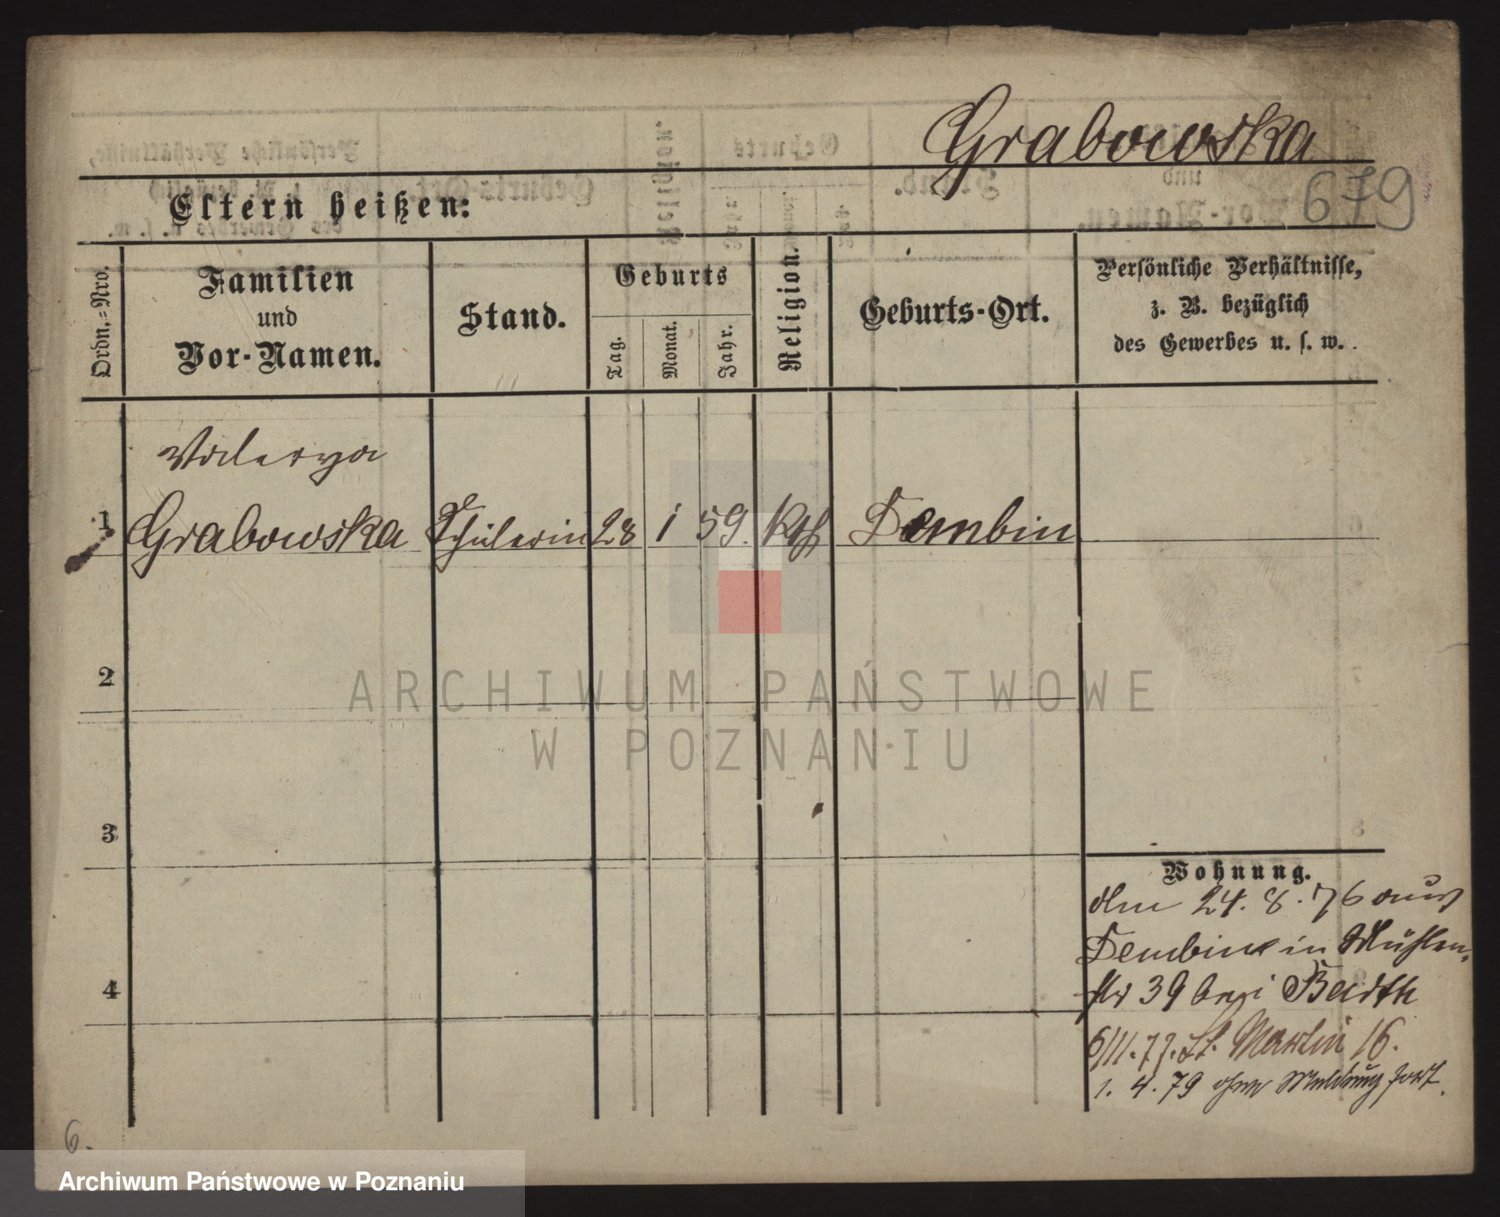 Grabowska
679
Eltern heißen:
Ordn.-Nro.
Familien
und
Vor-Namen.
Stand.
Geburts
Tag.
Monat.
Jahr.
Religion.
Geburts-Ort.
Persönliche Verhältnisse,
z. B. bezüglich
des Gewerbes u. s. w.
Valerya
1 Grabowska Schülerin 28 1 59. kth Dembin
2
3
4
Wohnung.
den 24. 8. 76 aus
Dembin in Mühlen-
str 39 bei
6/11. 77. St. Martin 16.
1. 4. 79 ohne Meldung fort.
6.
ARCHIWUM PAŃSTWOWE
W POZNANIU
Archiwum Państwowe w Poznaniu